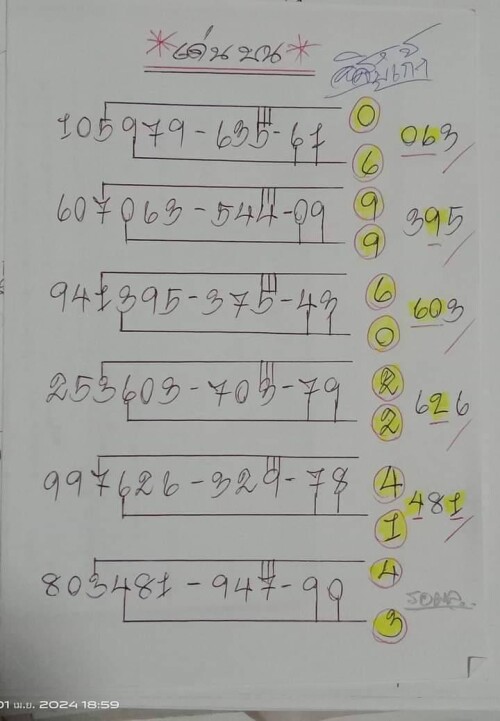 *เด่นบน*
สิบเก้า
105979-635-61 0
6 063
607063-544-09 9
9 395
941395-375-43 6
0 603
253603-703-79 2
2 626
997626-329-78 4
1 481
803481-947-90 4
3
01 เม.ย. 2024 18:59